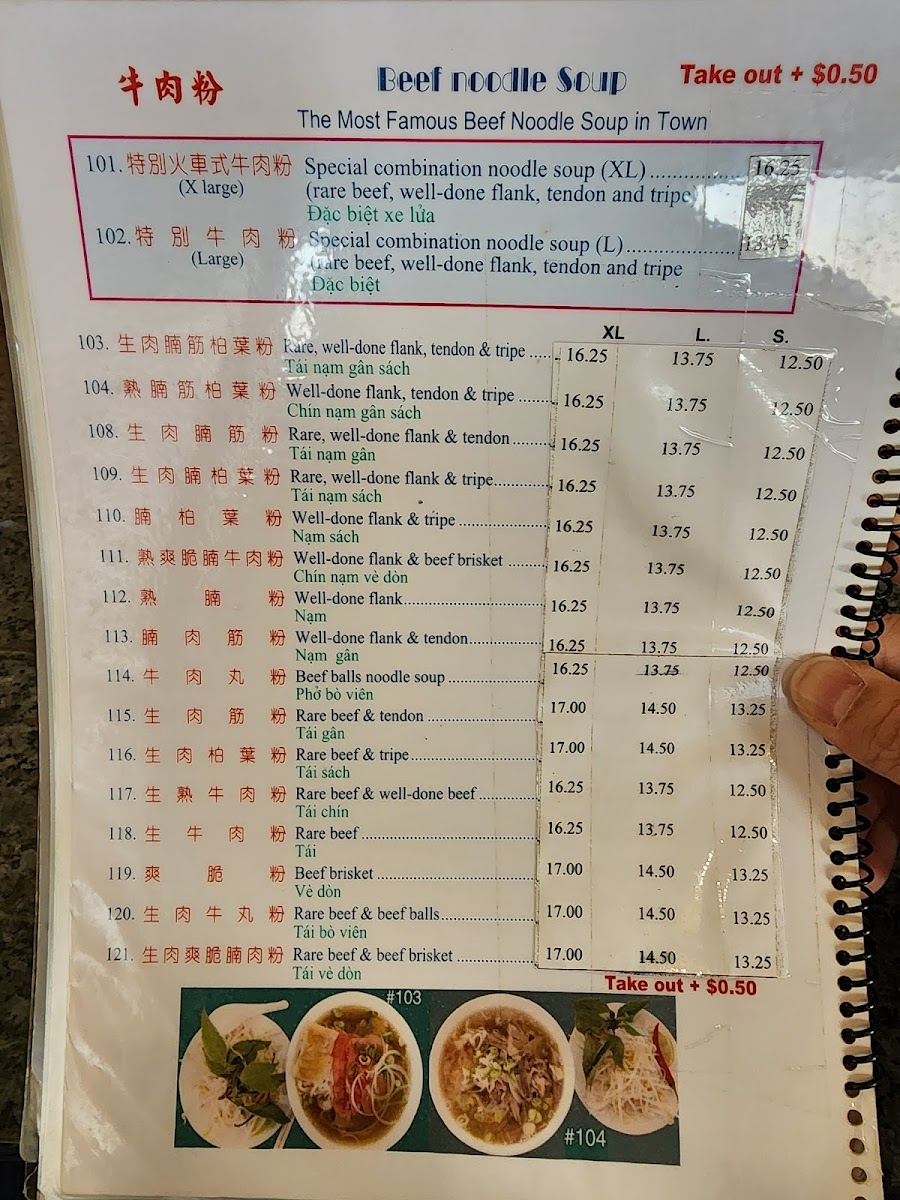 牛肉粉 Beef noodle Soup Take out + $0.50
The Most Famous Beef Noodle Soup in Town
101. 特別火車式牛肉粉 Special combination noodle soup (XL)................ 16.25
(X large) (rare beef, well-done flank, tendon and tripe
Đặc biệt xe lửa
102. 特別牛肉粉 Special combination noodle soup (L)..................... 13.75
(Large) (rare beef, well-done flank, tendon and tripe
Đặc biệt
XL L. S.
103. 生肉腩筋柏葉粉 Rare, well-done flank, tendon & tripe ..... 16.25 13.75 12.50
Tái nạm gân sách
104. 熟腩筋柏葉粉 Well-done flank, tendon & tripe ........ 16.25 13.75 12.50
Chín nạm gân sách
108. 生肉腩筋粉 Rare, well-done flank & tendon......... 16.25 13.75 12.50
Tái nạm gân
109. 生肉腩柏葉粉 Rare, well-done flank & tripe............. 16.25 13.75 12.50
Tái nạm sách
110. 腩柏葉粉 Well-done flank & tripe ..................... 16.25 13.75 12.50
Nạm sách
111. 熟爽脆腩牛肉粉 Well-done flank & beef brisket ......... 16.25 13.75 12.50
Chín nạm vè dòn
112. 熟腩粉 Well-done flank................................. 16.25 13.75 12.50
Nạm
113. 腩肉筋粉 Well-done flank & tendon.................. 16.25 13.75 12.50
Nạm gân
114. 牛肉丸粉 Beef balls noodle soup ....................... 16.25 13.75 12.50
Phở bò viên
115. 生肉筋粉 Rare beef & tendon ........................... 17.00 14.50 13.25
Tái gân
116. 生肉柏葉粉 Rare beef & tripe............................... 17.00 14.50 13.25
Tái sách
117. 生熟牛肉粉 Rare beef & well-done beef .............. 16.25 13.75 12.50
Tái chín
118. 生牛肉粉 Rare beef .......................................... 16.25 13.75 12.50
Tái
119. 爽脆粉 Beef brisket ...................................... 17.00 14.50 13.25
Vè dòn
120. 生肉牛丸粉 Rare beef & beef balls....................... 17.00 14.50 13.25
Tái bò viên
121. 生肉爽脆腩肉粉 Rare beef & beef brisket ................... 17.00 14.50 13.25
Tái vè dòn
Take out + $0.50
#103
#104